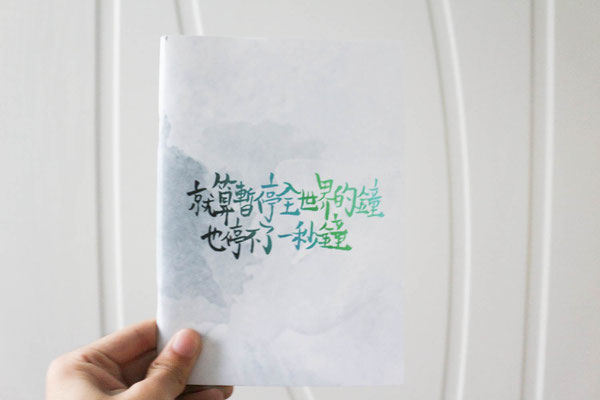 就算暫停全世界的鐘
也停不了一秒鐘